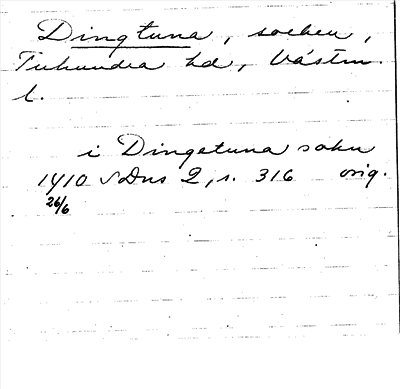 Dingtuna, socken,
Tuhundra hd, Västm.
l.
i Dingetuna sokn
1410 SDns 2, s. 316 orig.
26/6